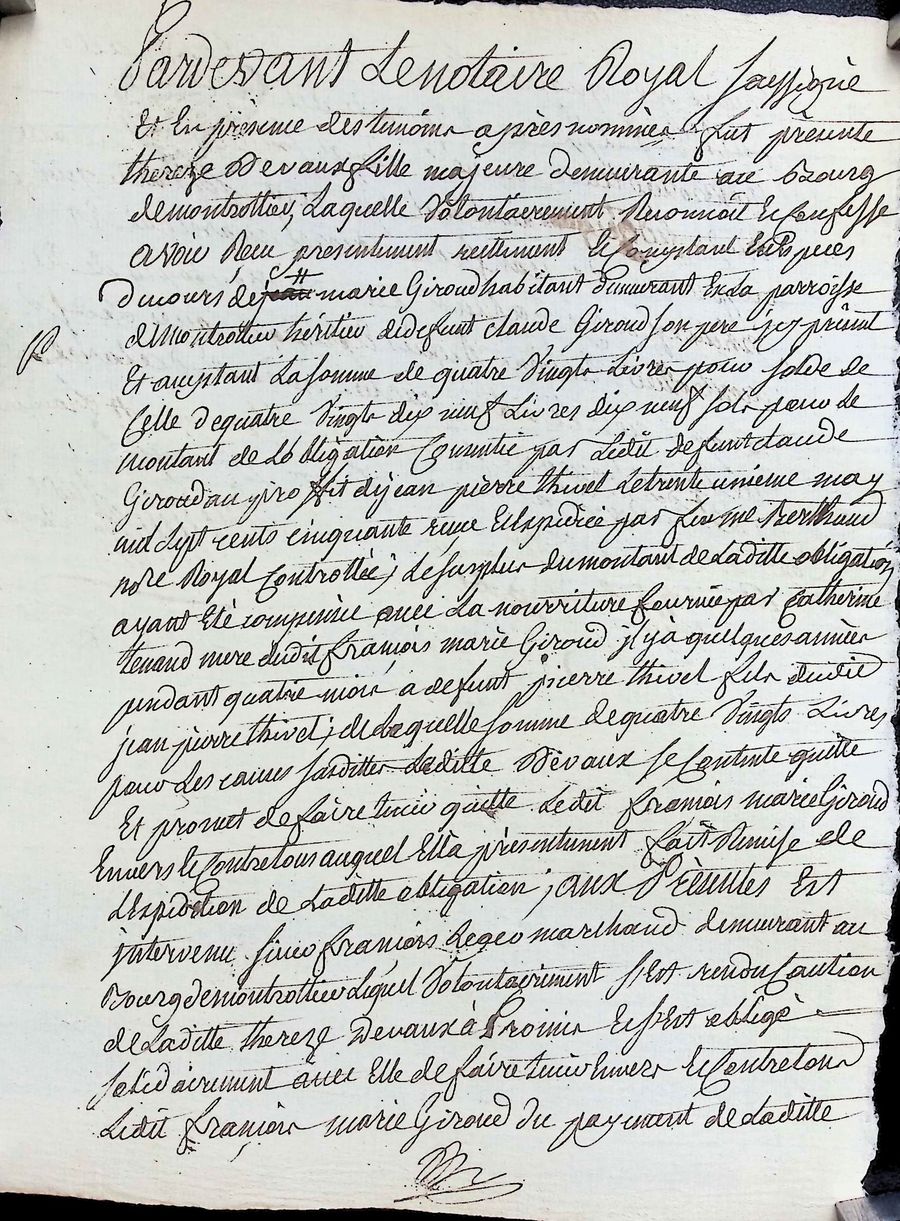 Pardevant Le notaire Royal soussigné
Et En présence des temoins après nommés fut présente
thereze Devaux fille majeure demeurante au Bourg
de montrottier, Laquelle Volontairement Reconnoit et Confesse
avoir Recu presentement reellement et Comptant En Espèces
de cours de jean marie Giroud habitant demeurant En La parroisse
de Montrottier héritier de defunt claude Giroud son pere icy présent
Et acceptant La somme de quatre Vingts Livres pour solde de
Celle de quatre Vingts dix neuf Livres dix neuf sols pour le
montant de L'obligation Consentie par Ledit defunt claude
Giroud au proffit de jean pierre thivel Le trente unieme may
mil sept cents cinquante Expediée par feu me Berthaud
nore Royal Controllée; Le surplus du montant de Laditte obligation
ayant Eté compensé avec La nourriture fournie par Catherine
tenand mere dudit françois marie Giroud il y à quelques années
pendant quatre mois a defunt pierre thivel fils dudit
jean pierre thivel; de Laquelle somme de quatre Vingts Livres
pour Les causes susdittes Laditte Devaux se Contente quitte
Et promet de faire tenir quitte Ledit françois marie Giroud
Envers et Contre tous auquel Ella présentement fait Remise de
L'Expedition de Laditte obligation; aux Présentes Est
intervenu sieur françois Leger marchand demeurant au
Bourg de montrottier Lequel Volontairement s'Est rendu Caution
de Laditte thereze Devaux à Et s'Est obligé
solidairement avec Elle de faire tenir Envers et Contre tous
Ledit françois marie Giroud du payement de Laditte